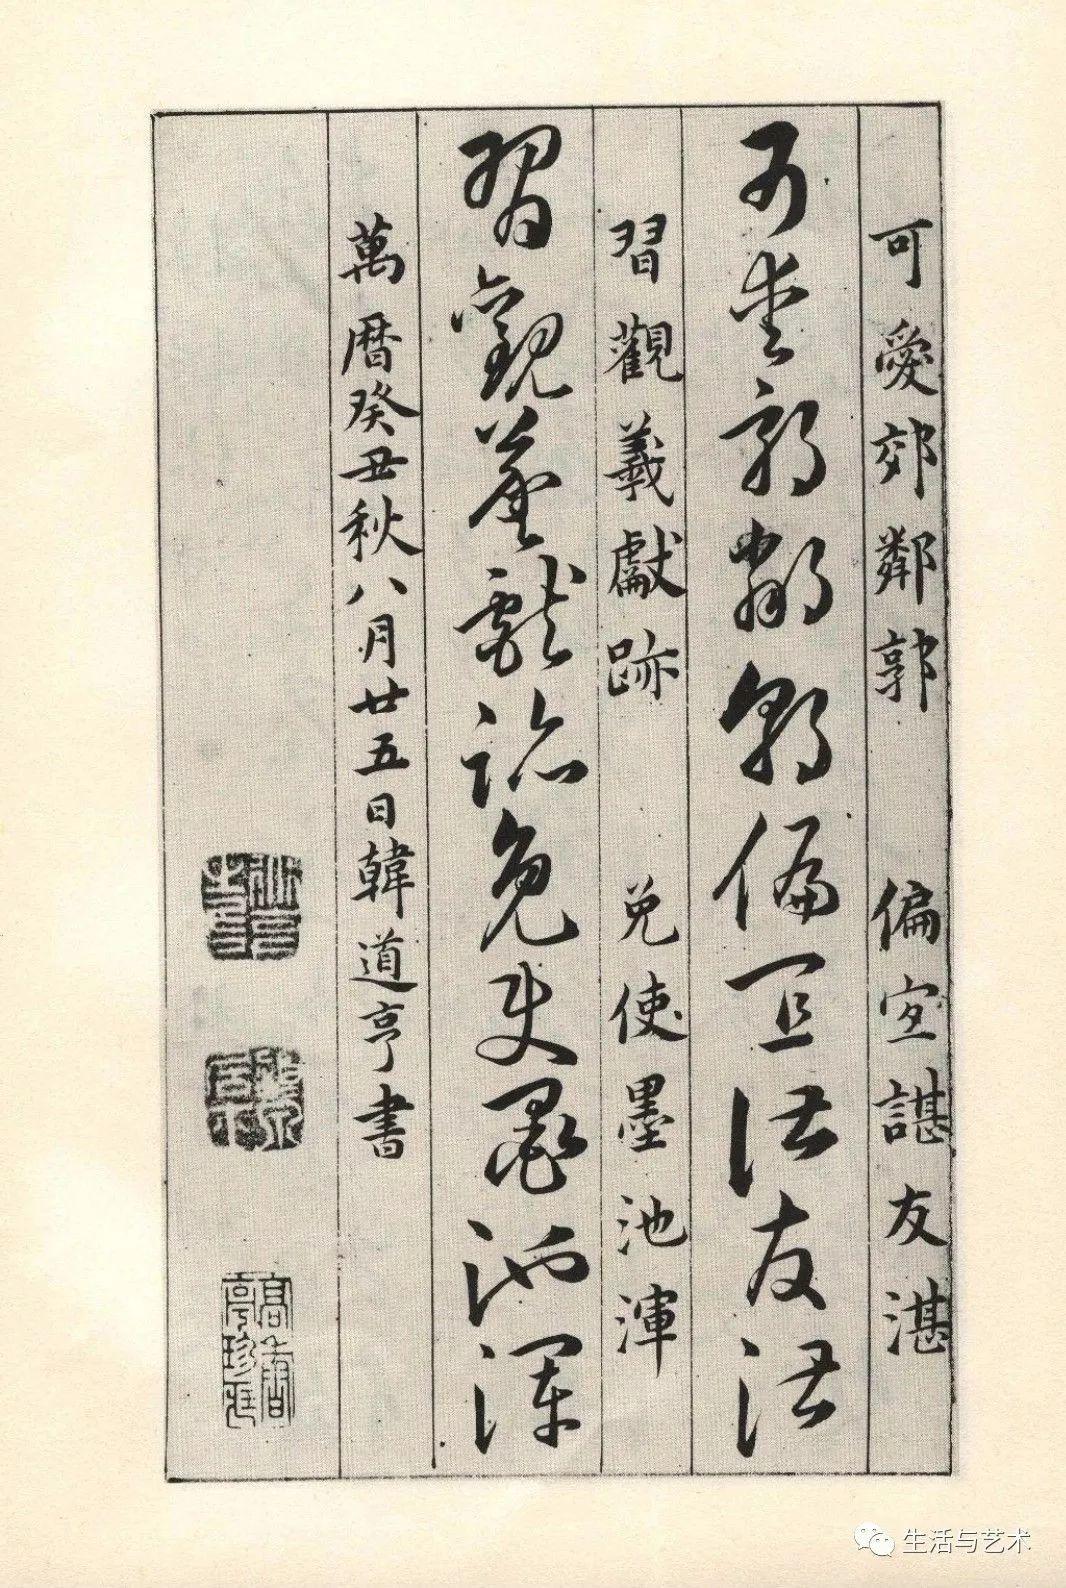 可愛郊鄰郭　偏宜諶友湛
可愛郊鄰郭偏宜諶友湛
習觀羲獻跡　免使墨池渾
習觀羲獻跡免使墨池渾
萬曆癸丑秋八月廿五日韓道亨書
生活与艺术